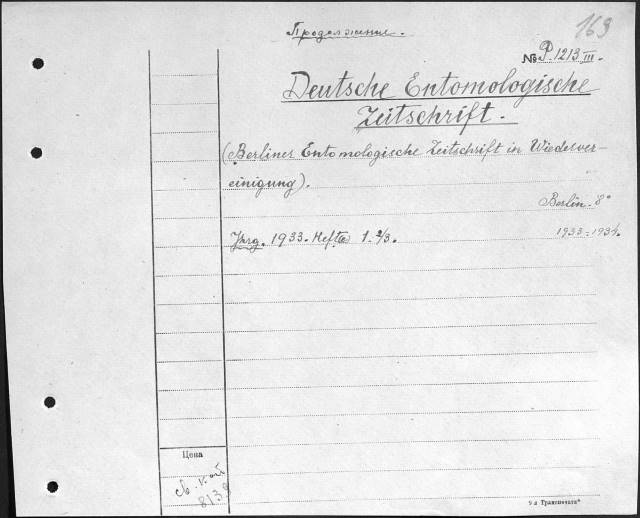 Продолжение.
163
№ P. 1213 III.
Deutsche Entomologische
Zeitschrift.
(Berliner Entomologische Zeitschrift in Wiederver-
einigung).
Berlin. 8°
Jhrg. 1933. Hefte 1. 2/3.
1933-1934.
Цена
св. кат
813
9 д Транспечати"